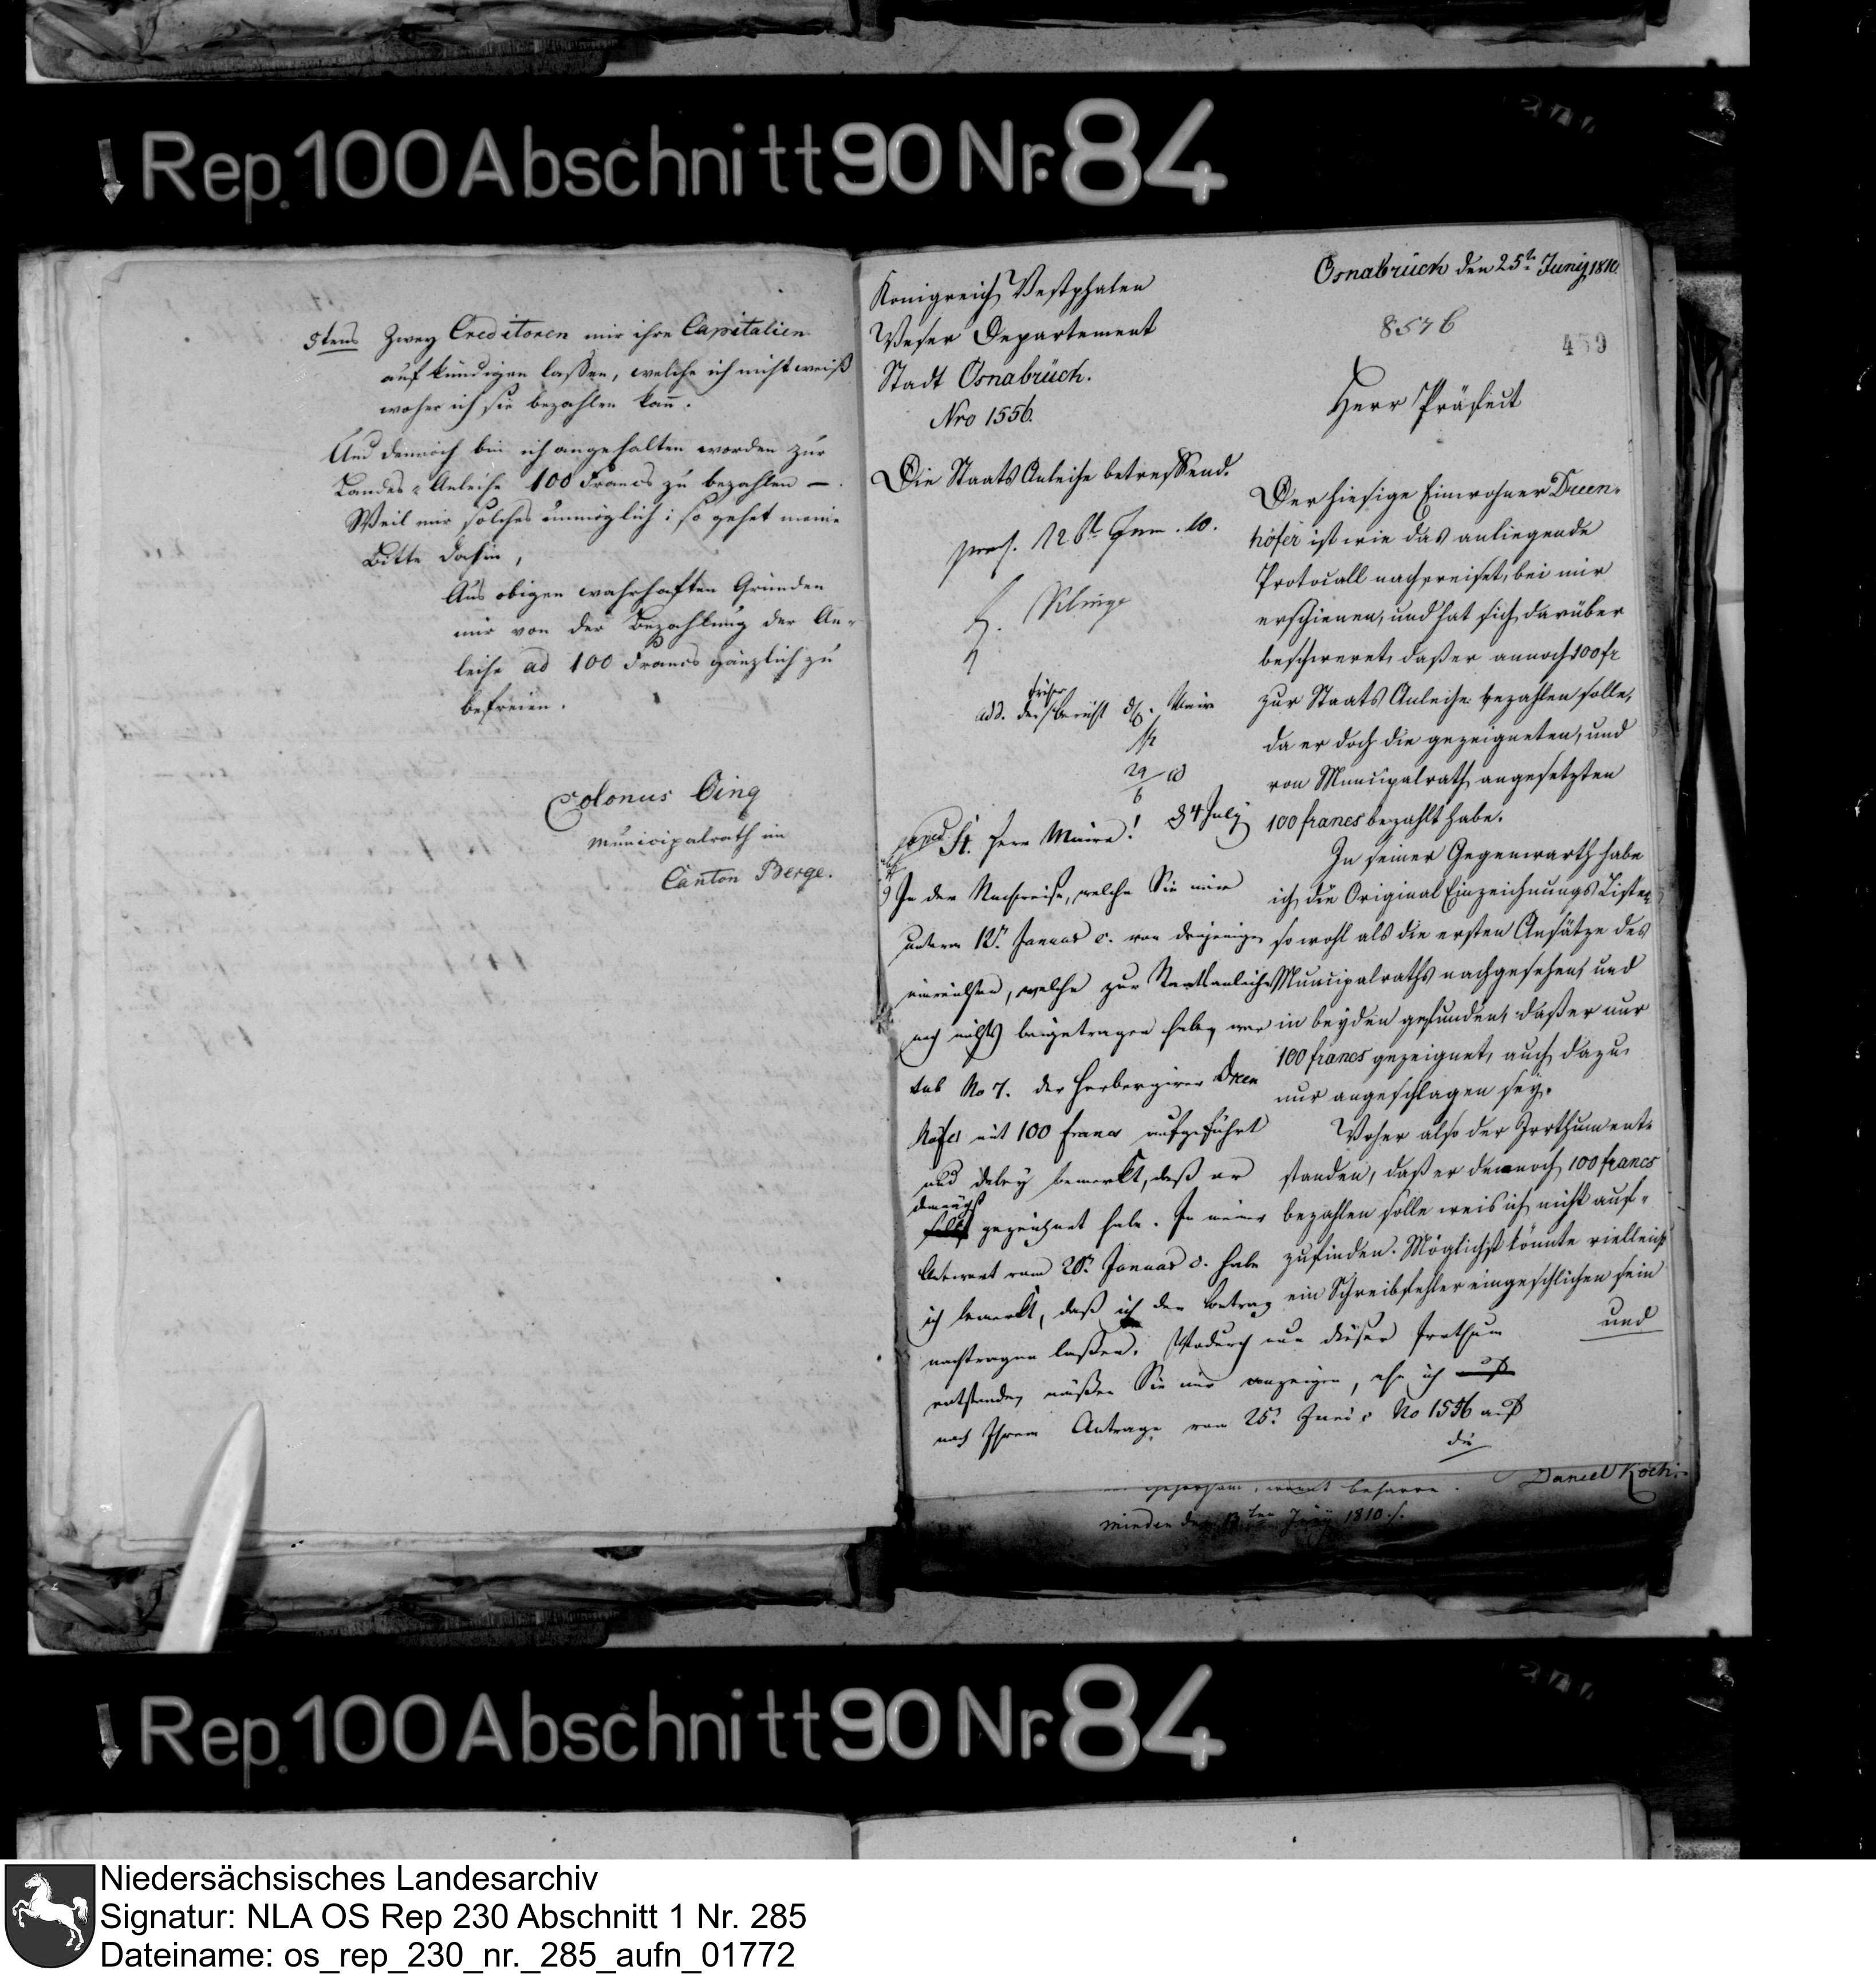 Rep. 100 Abschnitt 90 Nr. 84
5tens Zwey Creditoren mir ihre Capitalien
aufkündigen lassen, welche ich nicht weiß
woher ich sie bezahlen kann.
Und dennoch bin ich angehalten worden zur
Landes-Anleihe 100 Francs zu bezahlen —.
Weil mir solches unmöglich; so gehet meine
Bitte dahin,
Aus obigen wahrhaften Gründen
mir von der Bezahlung der An-
leihe ad 100 Francs gänzlich zu
befreien.
Colonus Oing
Municipalrath im
Canton Berge.
Königreich Westphalen
Weser Departement
Stadt Osnabrück.
Nro 1556.
Die Staats Anleihe betreffend.
Osnabrück den 25t Juny 1810.
8576
459
Herr Präfect
Der hiesige Einwohner Dreen-
höfer ist wie das anliegende
Protocoll nachweiset, bei mir
erschienen, und hat sich darüber
beschweret, daß er annoch 100 fr
zur Staats Anleihe bezahlen solle,
da er doch die gezeigneten, und
von Municipalrath angesetzten
100 francs bezahlt habe.
In seiner Gegenwarth habe
ich die Original Einzeichnungs Listen
so wohl als die ersten Ansätze des
Municipalraths nachgesehen, und
in beyden gefunden, daß er nur
100 francs gezeignet, auch dazu
nur angeschlagen sey.
Woher also der Irrthum ent-
standen, daß er dennoch 100 francs
bezahlen solle weis ich nicht auf-
zufinden. Möglichst könnte vielleicht
ein Schreibfehler eingeschlichen sein
und
Daniel Koch
add. der frühere Bericht des Maire
29/6
d 4 July
H. Herr Maire!
In der Nachweise, welche Sie mir
unterm 12t Januar c. von denjenigen
einreichten, welche zur Staatsanleihe
noch nichts beigetragen haben, war
sub No 7. der Herbergirer Dreen
höfer mit 100 francs aufgeführt
und dabey bemerkt, daß er
demnächst
gezeichnet habe. In meiner
Antwort vom 20t Januar c. habe
ich bemerkt, daß ich den Betrag
nachtragen lassen. Wodurch nun dieser Irrthum
entstanden, müßen Sie mir anzeigen, ehe ich
nach Ihrem Antrage vom 25t Juni c No 1556 auf
die
gehorsam, womit beharre.
Minden den 13ten July 1810.
Rep. 100 Abschnitt 90 Nr. 84
Niedersächsisches Landesarchiv
Signatur: NLA OS Rep 230 Abschnitt 1 Nr. 285
Dateiname: os_rep_230_nr._285_aufn_01772